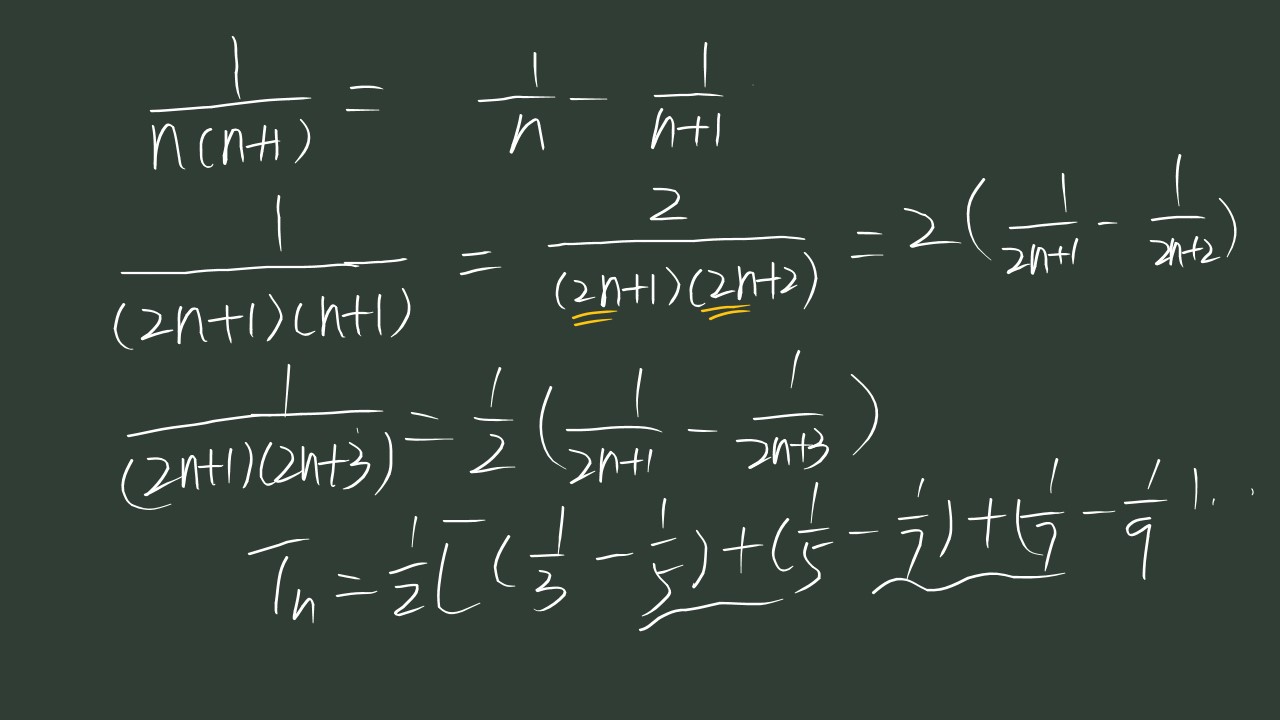 1/(n(n+1)) = 1/n - 1/(n+1)
1/((2n+1)(n+1)) = 2/((2n+1)(2n+2)) = 2(1/(2n+1) - 1/(2n+2))
1/((2n+1)(2n+3)) = 1/2(1/(2n+1) - 1/(2n+3))
Tn = 1/2[(1/3 - 1/5) + (1/5 - 1/7) + (1/7 - 1/9)...